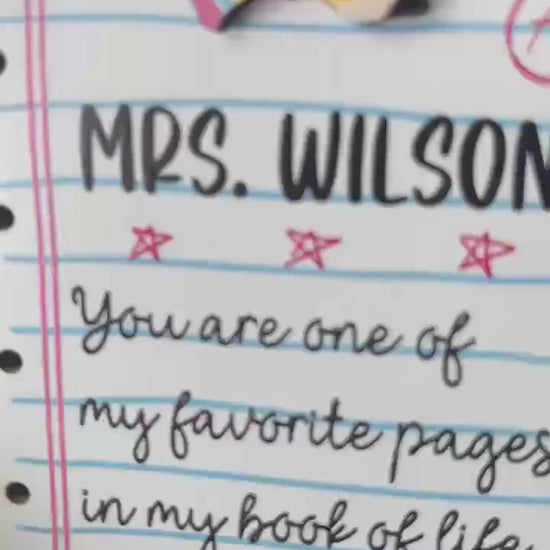 MRS. WILSON
You are one of
my favorite pages
in my book of life